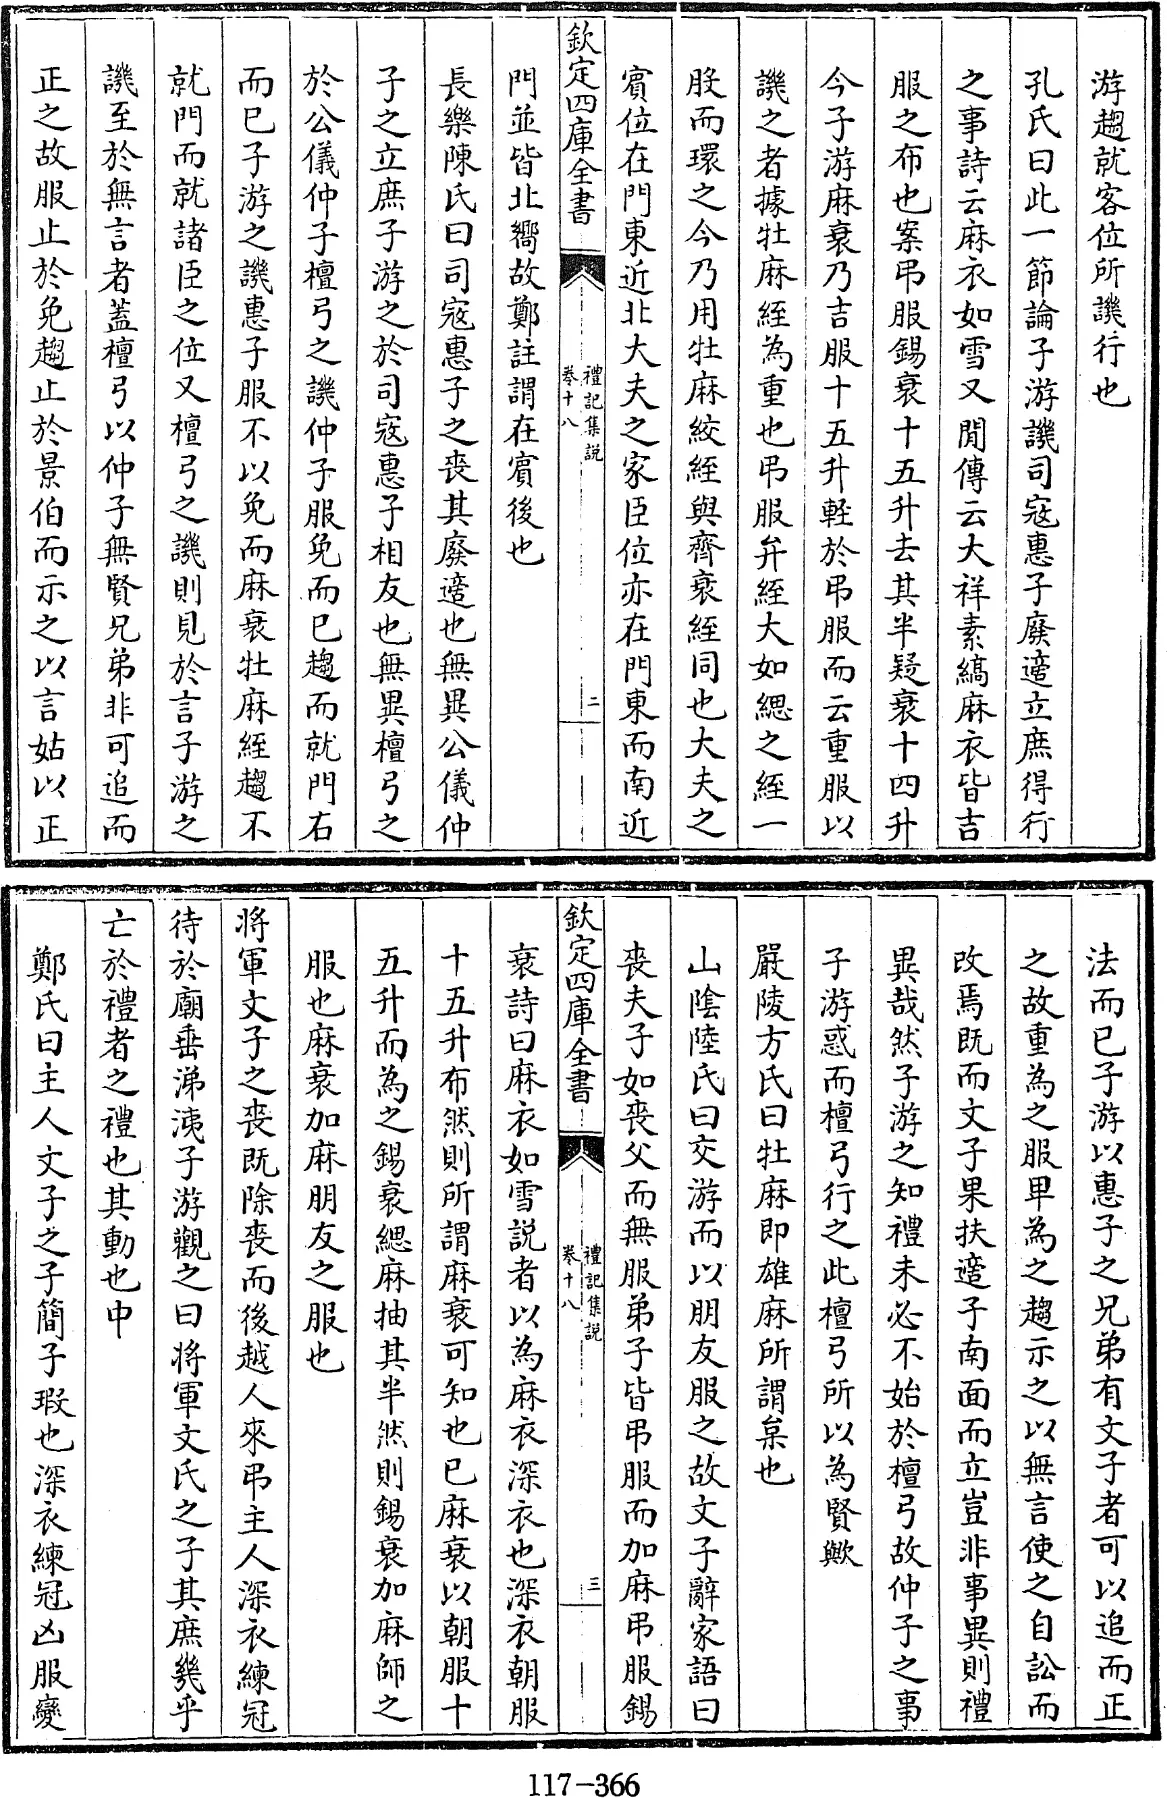 游趨就客位所譏行也
孔氏曰此一節論子游譏司寇惠子廢適立庶得行
之事詩云麻衣如雪又閒傳云大祥素縞麻衣皆吉
服之布也案弔服錫衰十五升去其半疑衰十四升
今子游麻衰乃吉服十五升輕於弔服而云重服以
譏之者據牡麻絰為重也弔服弁絰大如緦之絰一
股而環之今乃用牡麻絞絰與齊衰絰同也大夫之
賓位在門東近北大夫之家臣位亦在門東而南近
欽定四庫全書
禮記集説
卷十八
二
門並皆北嚮故鄭註謂在賓後也
長樂陳氏曰司寇惠子之喪其廢適也無異公儀仲
子之立庶子游之於司寇惠子相友也無異檀弓之
於公儀仲子檀弓之譏仲子服免而已趨而就門右
而已子游之譏惠子服不以免而麻衰牡麻絰趨不
就門而就諸臣之位又檀弓之譏則見於言子游之
譏至於無言者蓋檀弓以仲子無賢兄弟非可追而
正之故服止於免趨止於景伯而示之以言姑以正
法而已子游以惠子之兄弟有文子者可以追而正
之故重為之服卑為之趨示之以無言使之自訟而
改焉既而文子果扶適子南面而立豈非事異則禮
異哉然子游之知禮未必不始於檀弓故仲子之事
子游惑而檀弓行之此檀弓所以為賢歟
嚴陵方氏曰牡麻即雄麻所謂枲也
山陰陸氏曰交游而以朋友服之故文子辭家語曰
喪夫子如喪父而無服弟子皆弔服而加麻弔服錫
欽定四庫全書
禮記集説
卷十八
三
衰詩曰麻衣如雪説者以為麻衣深衣也深衣朝服
十五升布然則所謂麻衰可知也已麻衰以朝服十
五升而為之錫衰緦麻抽其半然則錫衰加麻師之
服也麻衰加麻朋友之服也
將軍文子之喪既除喪而後越人來弔主人深衣練冠
待於廟垂涕洟子游觀之曰將軍文氏之子其庶幾乎
亡於禮者之禮也其動也中
鄭氏曰主人文子之子簡子瑕也深衣練冠凶服變
117-366